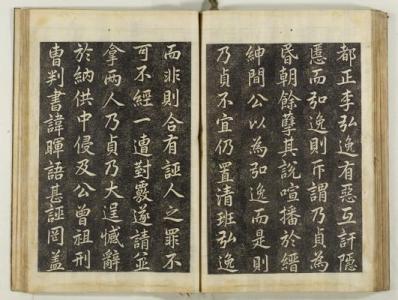 都正李弘逸有惡互訐隱
慝而弘逸則斥謂乃貞為
昏朝餘孽其說喧播於縉
紳間公以為弘逸而是則
乃貞不宜仍置清班弘逸
而非則合有誣人之罪不
可不經一遭對覈遂請並
拿兩人乃貞乃大逞憾辭
於納供中侵及公曾祖刑
曹判書諱暉語甚誣罔盖